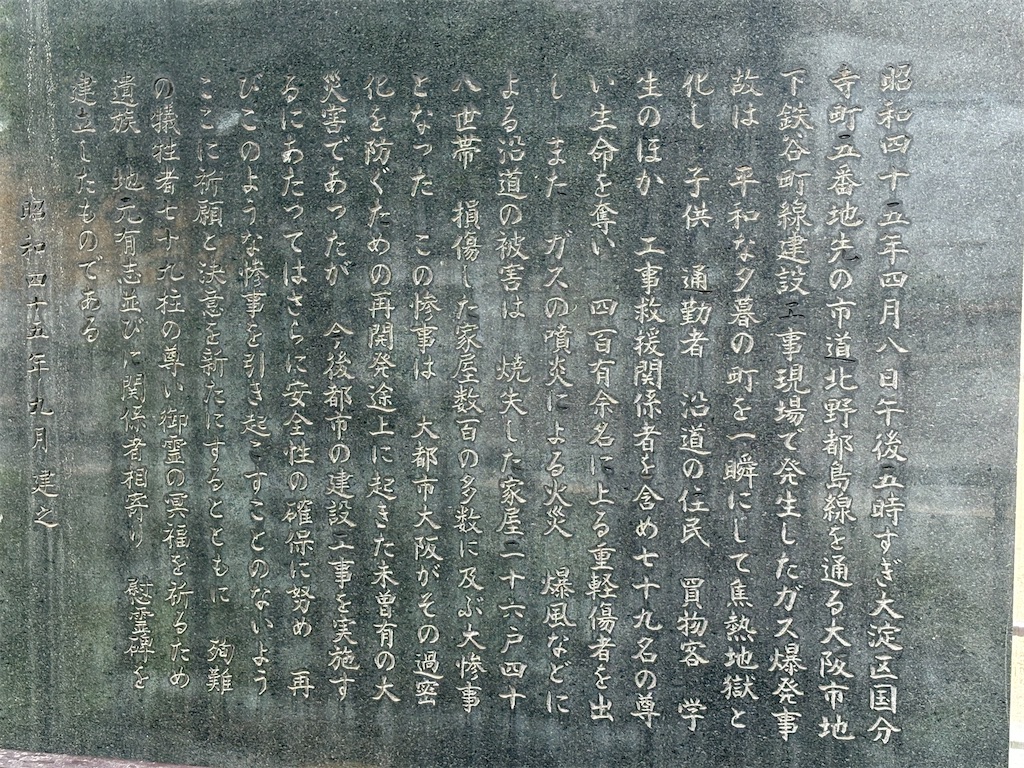 昭和四十五年四月八日午後五時すぎ大淀区国分
寺町五番地先の市道北野都島線を通る大阪市地
下鉄谷町線建設工事現場で発生したガス爆発事
故は 平和な夕暮の町を一瞬にして焦熱地獄と
化し 子供 通勤者 沿道の住民 買物客 学
生のほか 工事救援関係者を含め七十九名の尊
い生命を奪い 四百有余名に上る重軽傷者を出
し また ガスの噴炎による火災 爆風などに
よる沿道の被害は 焼失した家屋二十六戸四十
八世帯 損傷した家屋数百の多数に及ぶ大惨事
となった この惨事は 大都市大阪がその過密
化を防ぐための再開発途上に起きた未曽有の大
災害であったが 今後都市の建設工事を実施す
るにあたってはさらに安全性の確保に努め 再
びこのような惨事を引き起こすことのないよう
ここに祈願と決意を新たにするとともに 殉難
の犠牲者七十九柱の尊い御霊の冥福を祈るため
遺族 地元有志並びに関係者相寄り 慰霊碑を
建立したものである
昭和四十五年九月建之